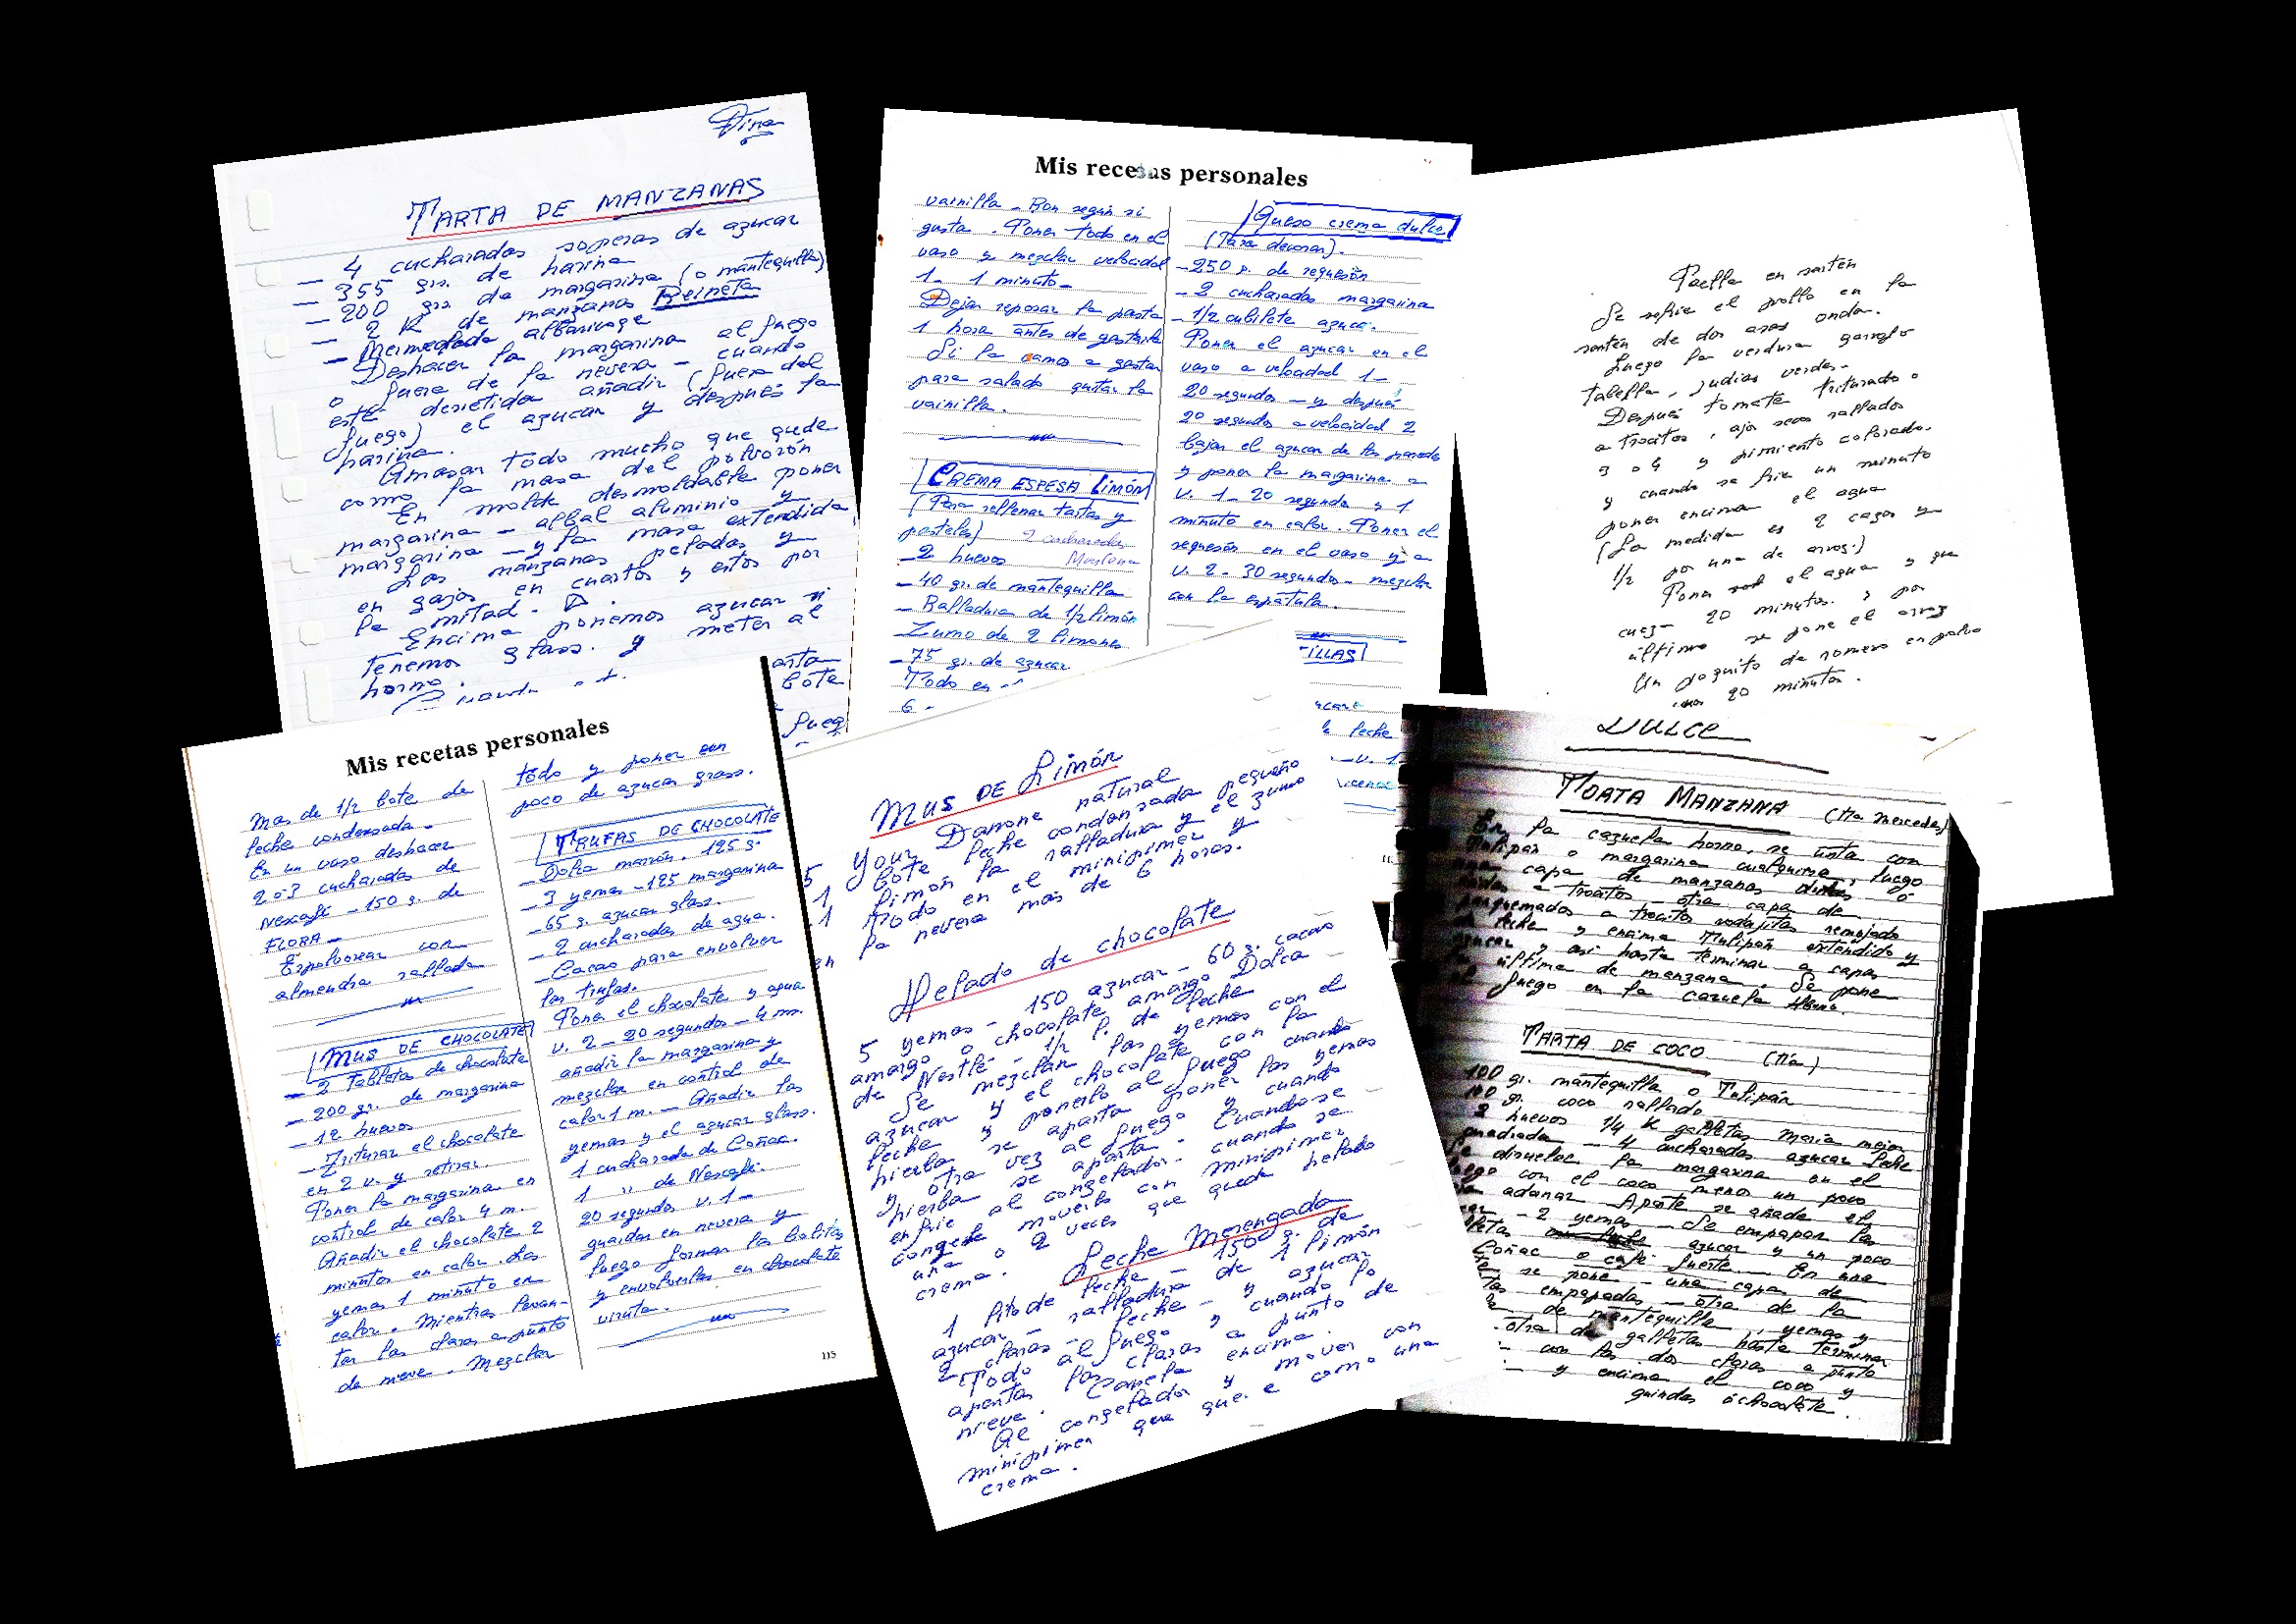 Tarta de Manzanas
— 4 cucharadas soperas de azucar
— 355 grs. de harina
— 200 grs. de margarina (o mantequilla)
— 2 K de manzanas Reineta
— Mermelada albaricoge
Deshacer la margarina al fuego
o fuera de la nevera — cuando
esté derretida añadir (fuera del
fuego) el azucar y después la
harina.
Amasar todo mucho que quede
como la masa del polvorón
En molde desmoldable poner
margarina — albal aluminio y
margarina — y la masa extendida
Las manzanas peladas y
en gajos en cuartos y estos por
la mitad.
Encima ponemos azucar si
tenemos glass. y meter al
horno.
Mis recetas personales
vainilla — Ron segun si
gusta. Poner todo en el
vaso y mezclar velocidad
1 — 1 minuto —
Dejar reposar la pasta
1 hora antes de gastarla
Si la vamos a gastar
para salado quitar la
vainilla.
Crema espesa Limón
(Para rellenar tartas y
pasteles) 2 cucharadas
— 2 huevos Maizena
— 40 gr. de mantequilla
— Ralladura de 1/2 limón
— Zumo de 2 limones
— 75 gr. de azucar
Todo en
6 —
Queso crema dulce
(Para decorar).
— 250 g. de requesón
— 2 cucharadas margarina
— 1/2 cubilete azucar.
Poner el azucar en el
vaso a velocidad 1 —
20 segundos — y después
20 segundos a velocidad 2
bajar el azucar de las paredes
y poner la margarina a
v. 1 — 20 segundos y 1
minuto en calor. Poner el
requesón en el vaso y a
v. 2 — 30 segundos — mezclar
con la espátula.
ILLAS
leche
v. 1
Paella en sartén
Se sofrie el pollo en la
sartén de dos asas onda.
Luego la verdura garrofo
tabella, judias verdes —
Después tomate triturado o
a trocitos, ajos secos rallados
3 o 4 y pimiento colorado.
y cuando se frie un minuto
poner encima el agua
(La medida es 2 cazos y
1/2 por una de arroz.)
Poner sal el agua y que
cueza 20 minutos. y por
último se pone el arroz
Un poquito de romero en polvo
20 minutos.
Mis recetas personales
Mas de 1/2 bote de
leche condensada.
En un vaso deshacer
2 o 3 cucharadas de
Nescafé — 150 g. de
FLORA —
Espolvorear con
almendra rallada
Mus de chocolate
— 2 Tabletas de chocolate
— 200 gr. de margarina
— 12 huevos
— Triturar el chocolate
en 2 v. y retirar.
Poner la margarina en
control de calor 4 m.
Añadir el chocolate 2
minutos en calor. Las
yemas 1 minuto en
calor. Mientras levan-
tar las claras a punto
de nieve. Mezclar
todo y poner un
poco de azucar grass.
Trufas de chocolate
— Dolca marrón. 125 g.
— 3 yemas — 125 margarina
— 65 g. azucar glass.
— 2 cucharadas de agua.
— Cacao para envolver
las trufas.
Poner el chocolate y agua
v. 2 — 20 segundos — 4 m.
añadir la margarina y
mezclar en control de
calor 1 m. — Añadir las
yemas y el azucar glass.
1 cucharada de Coñac.
1 " de Nescafé.
20 segundos v. 1 —
guardar en nevera y
luego formar las bolitas
y envolverlas en chocolate
viruta.
115
Mus de Limón
5 Your Danone natural
1 bote leche condensada pequeño
1 limón la ralladura y el zumo
Todo en el minipimer y
en la nevera mas de 6 horas.
Helado de chocolate
5 yemas — 150 azucar — 60 g. cacao
amargo o chocolate amargo Dolca
de Nestlé — 1/2 l. de leche
Se mezclan las yemas con el
azucar y el chocolate con la
leche y ponerlo al fuego cuando
hierba se aparta poner las yemas
y otra vez al fuego y cuando
hierba se aparta — Cuando se
enfrie al congelador — cuando se
congele moverlo con minipimer
una o 2 veces que quede helado
crema.
Leche Merengada
1 lito de leche — 150 g. de
azucar — ralladura de 1 limón
2 claras — leche — y azucar
Todo al fuego y cuando lo
apartas las claras a punto de
nieve. Canela encima.
Al congelador y mover con
minipimer que quede como una
crema.
DULCE
Torta Manzana (Tia Mercedes)
En la cazuela horno, se unta con
Tulipán o margarina cualquiera, luego
una capa de manzanas
a trocitos — otra capa de
panquemados a trocitos rodajitas remojado
de leche y encima Tulipán extendido y
azucar y asi hasta terminar a capas
la última de manzana. Se pone
al fuego en la cazuela
Tarta de coco (Tía)
100 gr. mantequilla o Tulipán
100 gr. coco rallado
2 huevos 1/4 K galletas maria mejor
cuadrada — 4 cucharadas azucar leche
Se disuelve la margarina en el
fuego con el coco menos un poco
para adornar Aparte se añade el
azucar — 2 yemas — Se empapan las
galletas azucar y un poco
Coñac o café fuerte — En una
se pone — una capa de
empapadas — otra de la
de mantequilla, yemas y
otra de galletas hasta terminar
con las dos claras a punto
y encima el coco y
guindas o chocolate.